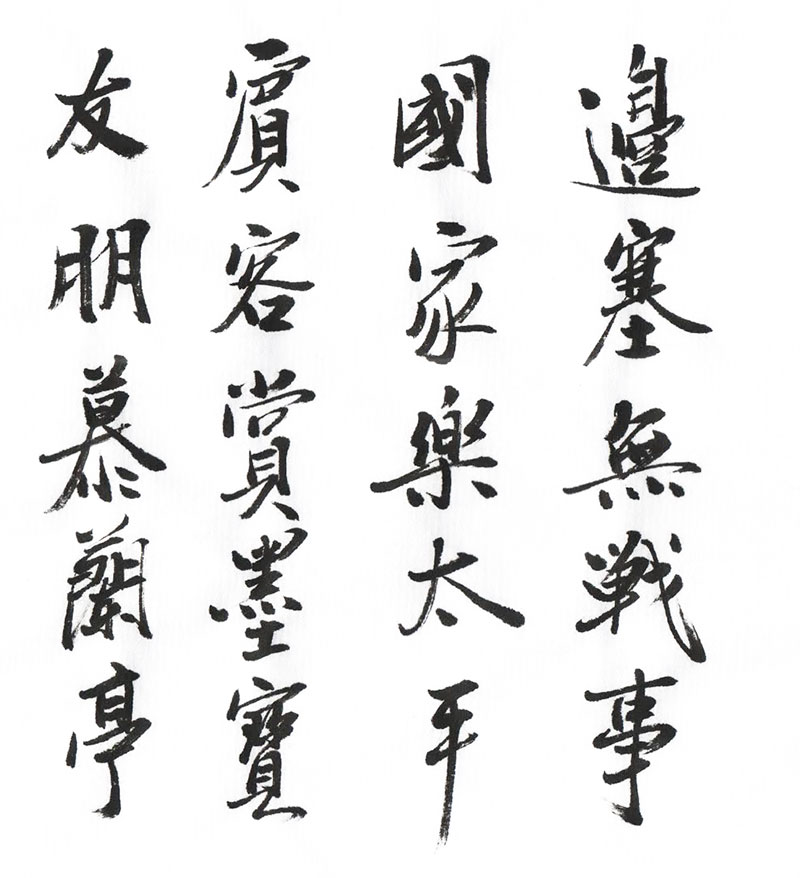 邊塞無戦事
國家樂太平
賓客賞墨寶
友朋慕蘭亭